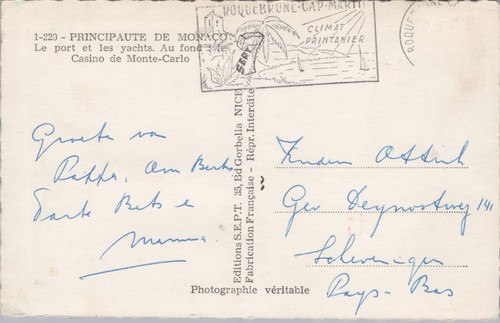 1-220 - PRINCIPAUTE DE MONACO
Le port et les yachts. Au fond le
Casino de Monte-Carlo
ROQUEBRUNE-CAP-MARTIN
CLIMAT
PRINTANIER
SEPT
Groeten van
Pappa, Om Bert
Tante Bets e
Mamma
Editions S.E.P.T. 35, Bd Gorbella NICE
Fabrication Française - Répr. Interdite
Kinderen
Gev Deynootweg 141
Scheveningen
Pays-Bas
Photographie véritable